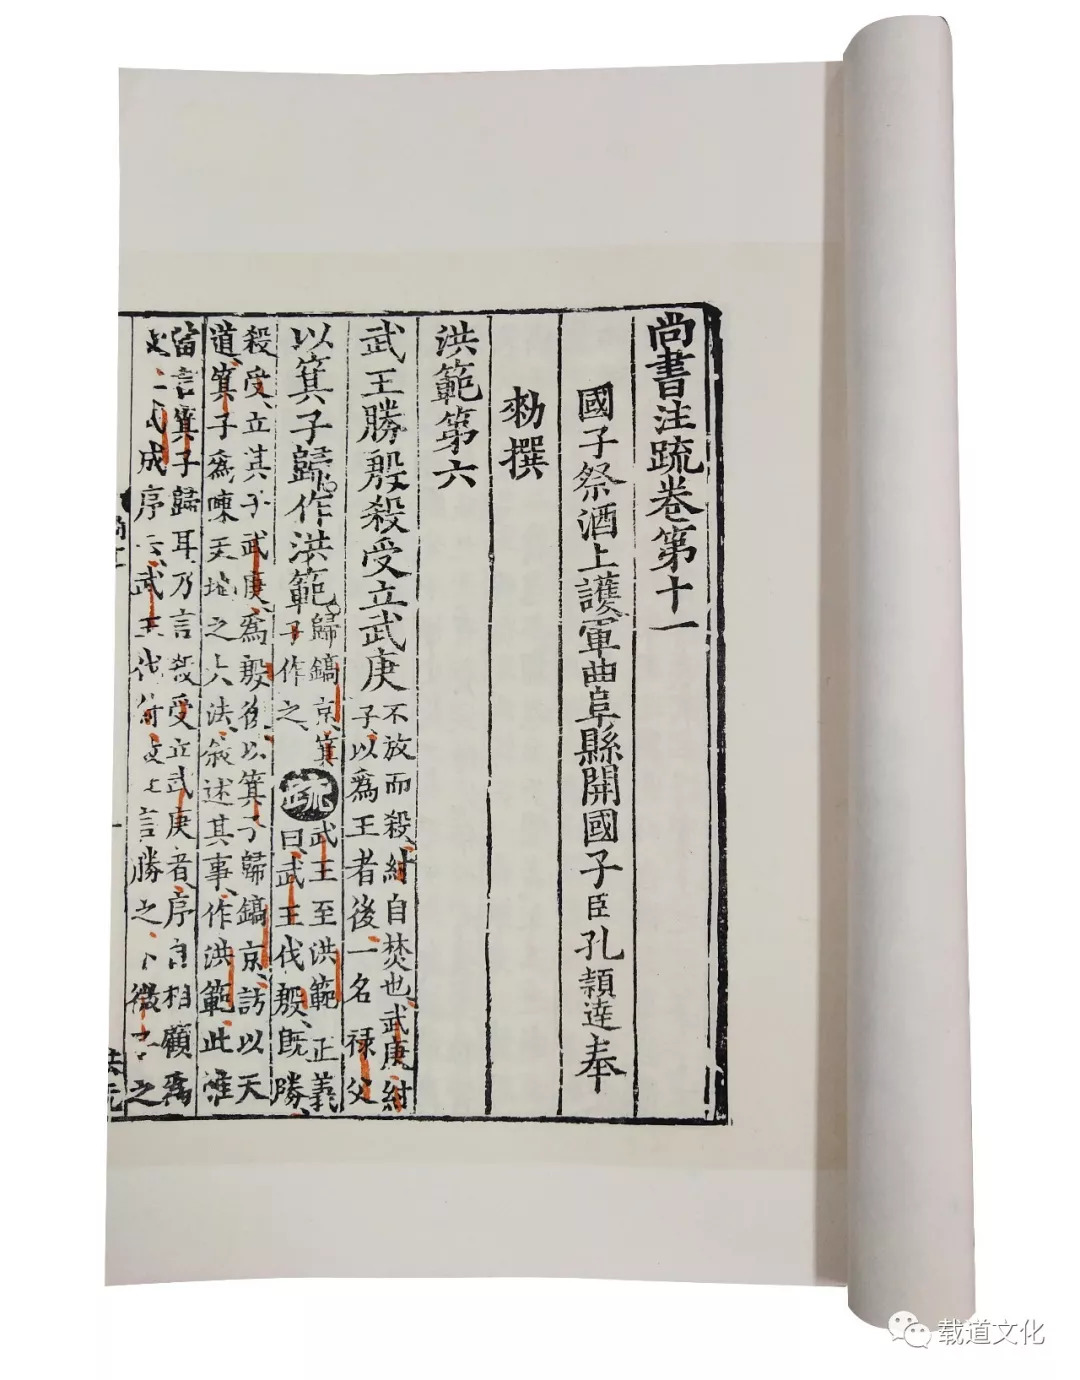 尚書注疏卷第十一
國子祭酒上護軍曲阜縣開國子臣孔穎達奉
勑撰
洪範第六
武王勝殷殺受立武庚
不放而殺紂自焚也武庚紂
子以爲王者後一名禄父
以箕子歸作洪範
歸鎬京箕
子作之
疏
武王至洪範 正義
曰武王伐殷既勝
殺受立其子武庚爲殷後以箕子歸鎬京訪以天
道箕子爲陳天地之大法叙述其事作洪範此惟
當言箕子歸耳乃言殺受立武庚者序自相顧爲
文上武成序云武王伐紂故此言勝之下微子之
载道文化